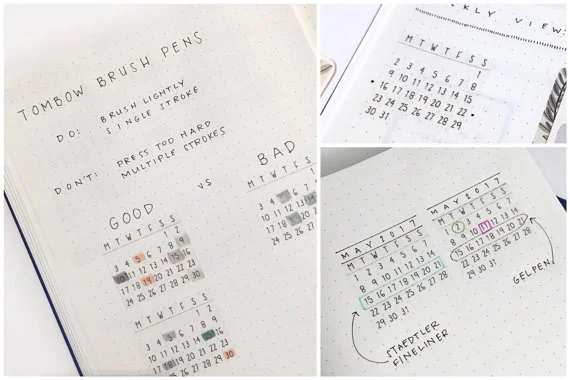 TOMBOW BRUSH PENS
DO: BRUSH LIGHTLY
SINGLE STROKE
DON'T: PRESS TOO HARD
MULTIPLE STROKES
GOOD VS BAD
M T W T F S S
1 2
3 4 5 6 7 8 9
10 11 12 13 14 15 16
17 18 19 20 21 22 23
24 25 26 27 28 29 30
M T W T F S S
1 2
3 4 5 6 7 8 9
10 11 12 13 14 15 16
17 18 19 20 21 22 23
24 25 26 27 28 29 30
M T W T F
3 4 5 6 7
10 11 12 13 14
17 18 19 20 21
24 25 26 27
KLY VIEW
M T W T F S S
1
2 3 4 5 6 7 8
9 10 11 12 13 14 15
16 17 18 19 20 21 22
23 24 25 26 27 28 29
30 31
MAY 2017
M T W T F S S
1 2 3 4 5 6 7
8 9 10 11 12 13 14
15 16 17 18 19 20 21
22 23 24 25 26 27 28
29 30 31
MAY 2017
M T W T F S S
1 2 3 4 5 6 7
8 9 10 11 12 13 14
15 16 17 18 19 20 21
22 23 24 25 26 27 28
29 30 31
STAEDTLER
FINELINER
GELPEN